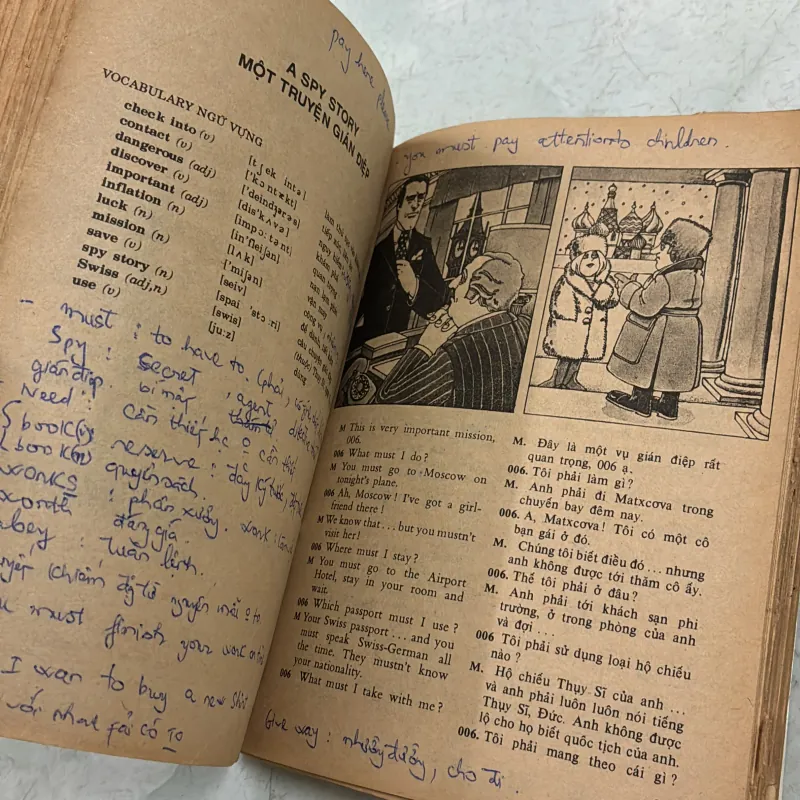 pay here please
A SPY STORY
MỘT TRUYỆN GIÁN ĐIỆP
VOCABULARY NGỮ VỰNG
check into (v)
contact (v) ['kɔntækt]
dangerous (adj) ['deindʒərəs]
discover (v)
important (adj) [impɔ:tənt]
inflation (n) [in'fleiʃən]
luck (n) [lʌk]
mission (n) ['miʃən]
save (v) [seiv]
spy story (n) [spai 'stɔ:ri]
Swiss (adj,n) [swis]
use (v) [ju:z]
- must : to have to. (phải,
Spy : Secret, agent,
gián điệp. bí mật,
- Need : Cần thiết
book(v) reserve :
book(n) quyển sách.
works : phân xưởng. work :
worth : đáng giá.
obey : tuân lệnh.
must finish your work
I wan to buy a new
you must pay attention to children.
M This is very important mission,
006.
006 What must I do ?
M You must go to Moscow on
tonight's plane.
006 Ah, Moscow ! I've got a girl-
friend there !
M We know that . . . but you mustn't
visit her!
006 Where must I stay ?
M You must go to the Airport
Hotel, stay in your room and
wait.
006 Which passport must I use ?
M Your Swiss passport . . . and you
must speak Swiss-German all
the time. They mustn't know
your nationality.
006 What must I take with me ?
M. Đây là một vụ gián điệp rất
quan trọng, 006 ạ.
006. Tôi phải làm gì ?
M. Anh phải đi Matxcơva trong
chuyến bay đêm nay.
006. A, Matxcơva ! Tôi có một cô
bạn gái ở đó.
M. Chúng tôi biết điều đó . . . nhưng
anh không được tới thăm cô ấy.
006. Thế tôi phải ở đâu ?
M. Anh phải tới khách sạn phi
trường, ở trong phòng của anh
và đợi . . .
006 Tôi phải sử dụng loại hộ chiếu
nào ?
M. Hộ chiếu Thụy Sĩ của anh . . .
và anh phải luôn luôn nói tiếng
Thụy Sĩ, Đức. Anh không được
lộ cho họ biết quốc tịch của anh.
006. Tôi phải mang theo cái gì ?
Give way : nhường đường, cho đi.